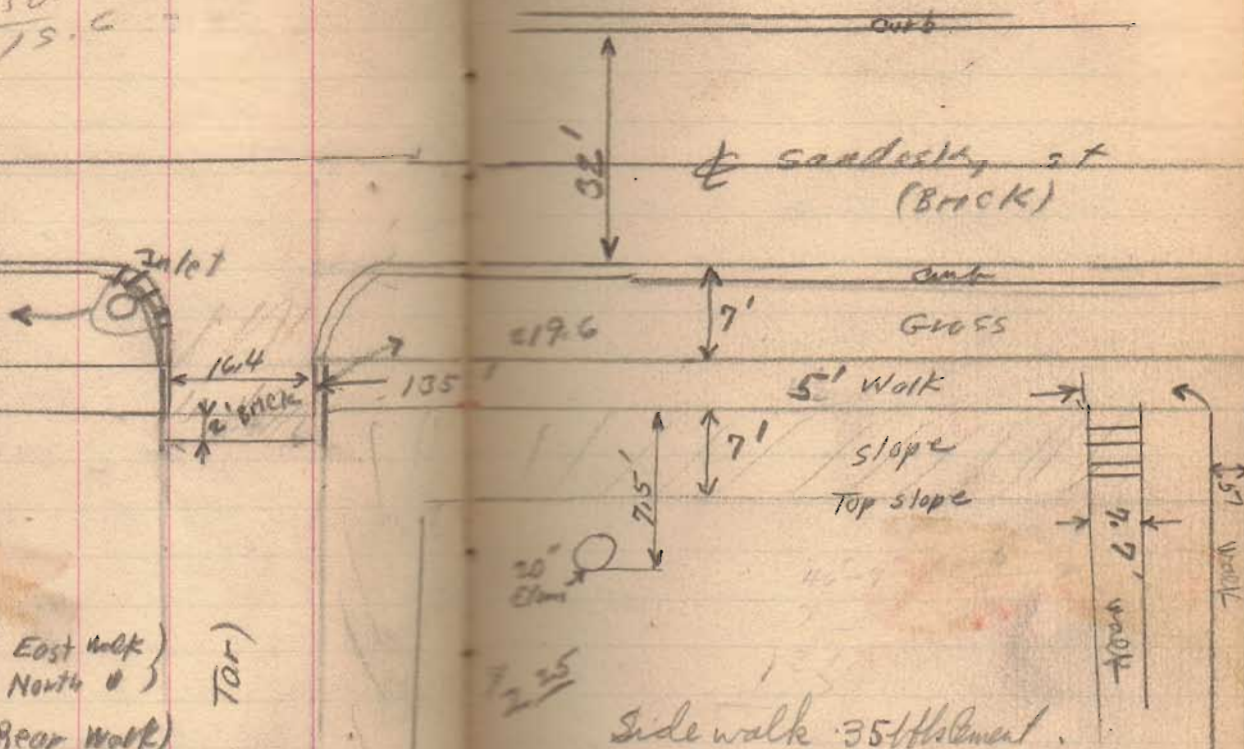 15.6
curb
32'
℄ Sandusky st
(Brick)
Inlet
curb
7'
Grass
219.6
16.4
135'
2' Brick
5' Walk
7'
slope
Top slope
7.5'
20"
Elm
7.7'
walk
5'
walk
East walk)
North " )
Tar)
Rear Walk)
25
Side walk .35